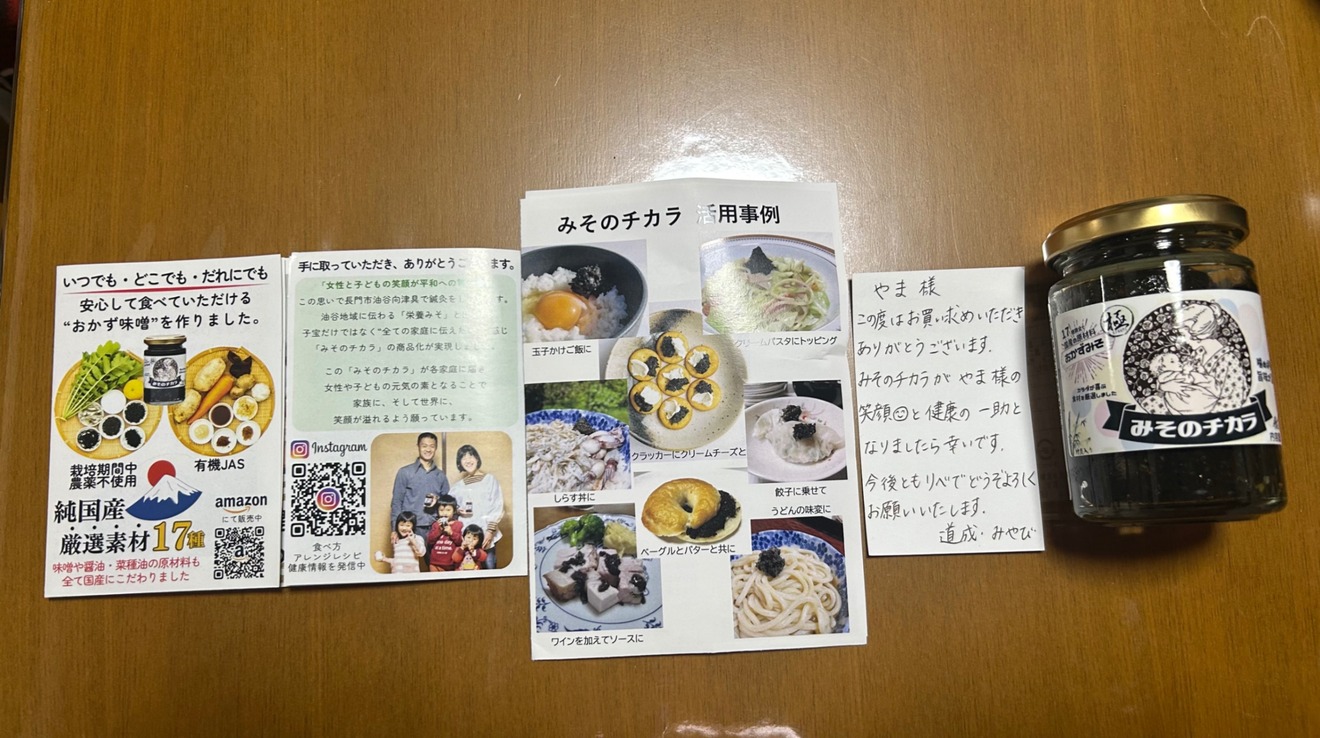 いつでも・どこでも・だれにでも
安心して食べていただける
“おかず味噌”を作りました。
栽培期間中
農薬不使用
有機JAS
純国産
厳選素材17種
amazon
にて販売中
味噌や醤油・菜種油の原材料も
全て国産にこだわりました
手に取っていただき、ありがとうございます。
「女性と子どもの笑顔が平和への
この思いで長門市油谷向津具で鍼灸を
油谷地域に伝わる「栄養みそ」と
子宝だけではなく“全ての家庭に伝え
「みそのチカラ」の商品化が実現
この「みそのチカラ」が各家庭に届き
女性や子どもの元気の素となることで
家族に、そして世界に、
笑顔が溢れるよう願っています。
Instagram
食べ方
アレンジレシピ
健康情報を発信中
みそのチカラ 活用事例
玉子かけご飯に
クリームパスタにトッピング
クラッカーにクリームチーズと
しらす丼に
餃子に乗せて
うどんの味変に
ベーグルとバターと共に
ワインを加えてソースに
やま様
この度はお買い求めいただき
ありがとうございます.
みそのチカラが やま様の
笑顔☺と健康の一助と
なりましたら幸いです.
今後ともリベでどうぞよろしく
お願いいたします.
道成・みやび
極
17
おかずみそ
みそのチカラ